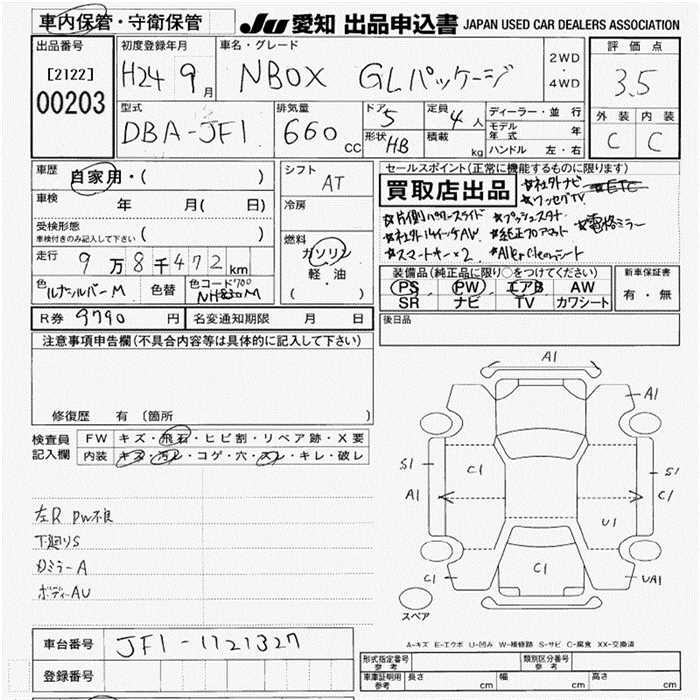 車内保管・守衛保管
JU 愛知 出品申込書 JAPAN USED CAR DEALERS ASSOCIATION
出品番号
[2122]
00203
初度登録年月
H24 9月
車名・グレード
NBOX GLパッケージ
2WD
・
4WD
評価点
3.5
外装 内装
C C
型式
DBA-JF1
排気量
660 cc
ドア 5
形状 HB
定員 4人
積載 kg
ディーラー・並行
モデル年式 年
ハンドル 左・右
車歴 自家用・( )
車検 年 月( 日)
受検形態
車検付きのみ記入して下さい ( )
走行 9万8千472km
色 ルナシルバーM
色替
色コード 700
NH830M
シフト
AT
冷房
燃料
ガソリン
軽・油
( )
セールスポイント(正常に機能するものに限ります)
買取店出品
☆社外ナビ ☆ETC
☆ワンセグTV
☆片側パワースライド ☆プッシュスタート ☆電格ミラー
☆社外14インチAW ☆純正フロアマット
☆スマートキー×2 ☆AllerCleanシート
装備品(純正品に限り○をつけてください)
PS PW エアB AW
SR ナビ TV カワシート
新車保証書
有・無
R券 9790円 名変通知期限 月 日
後日品
注意事項申告欄(不具合内容等は具体的に記入して下さい)
修復歴 有 〔箇所 〕
検査員
記入欄
FW キズ・飛石・ヒビ割・リペア跡・X要
内装 キズ・汚レ・コゲ・穴・スレ・キレ・破レ
左R PW不良
下廻りS
ミラーA
ボディーAU
A1
A1
S1
C1
S1
A1
C1
U1
C1
C1
UA1
スペア
A-キズ E-エクボ U-凹み W-補修跡 S-サビ C-腐食 XX-交換済
車台番号 JF1-1121327
登録番号
形式指定番号
参考
類別区分番号
参考
車庫証明用
参考
長さ cm 幅 cm 高さ cm